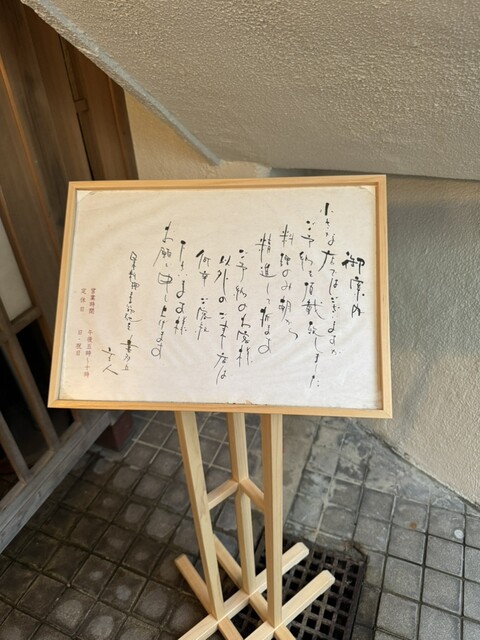 御案内
小さな店ではございますが
ご予約を頂戴致しました
料理のみ朝から
精進して居ります
ご予約のお客様
以外のご来店は
何卒 ご容赦
下さいます様
お願い申し上げます
主人
営業時間 午後五時〜十時
定休日 日・祝日